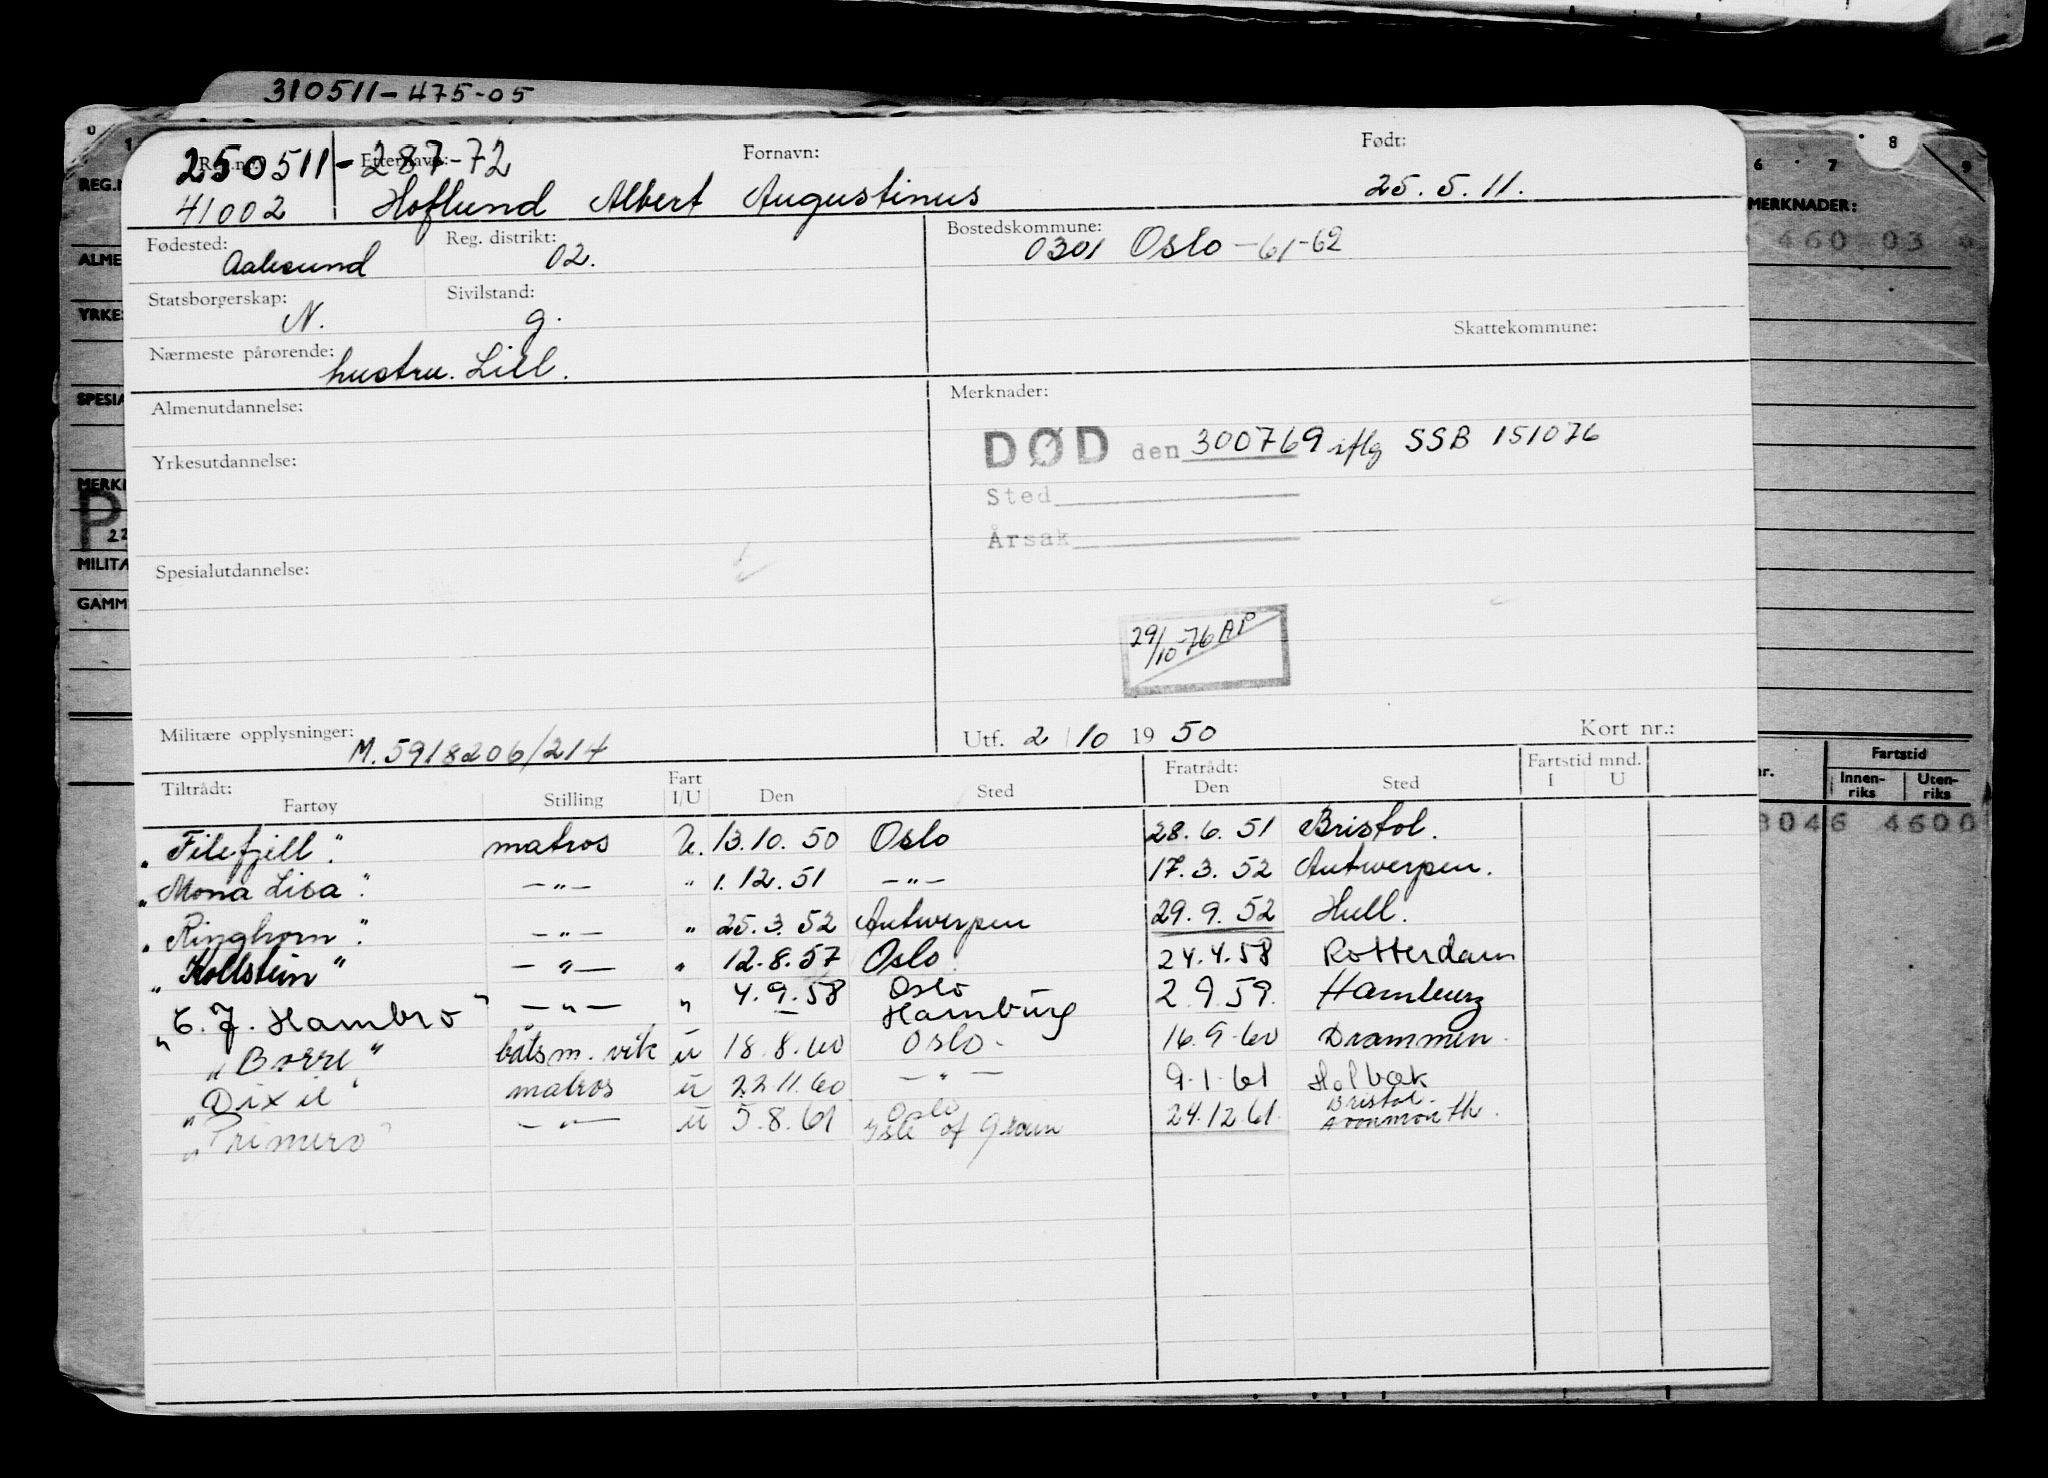 310511-475-05
Reg.nr. Etternavn: Fornavn: Født:
250511-287-72
41002 Hoflund Albert Augustinus 25.5.11.
Fødested: Aalesund Reg. distrikt: 02. Bostedskommune: 0301 Oslo -61-62
Statsborgerskap: N. Sivilstand: g.
Skattekommune:
Nærmeste pårørende: hustru. Lill.
Almenutdannelse: Merknader:
DØD den 300769 iflg SSB 151076
Yrkesutdannelse:
Sted
Årsak
Spesialutdannelse:
29/10-76 AP
Militære opplysninger: M.5918206/214 Utf. 2/10 1950 Kort nr.:
Tiltrådt: Fratrådt: Fartstid mnd.
Fartøy Stilling Fart I/U Den Sted Den Sted I U
"Filefjell". matros U. 13.10.50 Oslo 28.6.51 Bristol.
"Mona Lisa". -"- " 1.12.51 -"- 17.3.52 Antwerpen.
"Ringhorn". -"- " 25.3.52 Antwerpen 29.9.52 Hull.
"Kollstein" -"- " 12.8.57 Oslo. 24.4.58 Rotterdam
"C.J. Hambro" -"- " 4.9.58 Oslo Hamburg 2.9.59. Hamburg
"Borre" båtsm. vik u 18.8.60 Oslo. 16.9.60 Drammen.
"Dixie" matros u 22.11.60 -"- 9.1.61 Holbæk
"Primero" -"- u 5.8.61 Oslo Isle of Grain 24.12.61. Bristol. Avonmouth.
0 1 6 7 8 9
REG.N
MERKNADER:
460 03
ALME
YRKES
SPESIA
MERKN
P
22
MILITÆ
GAMM
nr. Fartstid
Innen-riks Uten-riks
3046 4600